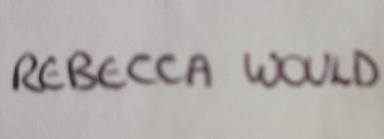 REBECCA WOULD